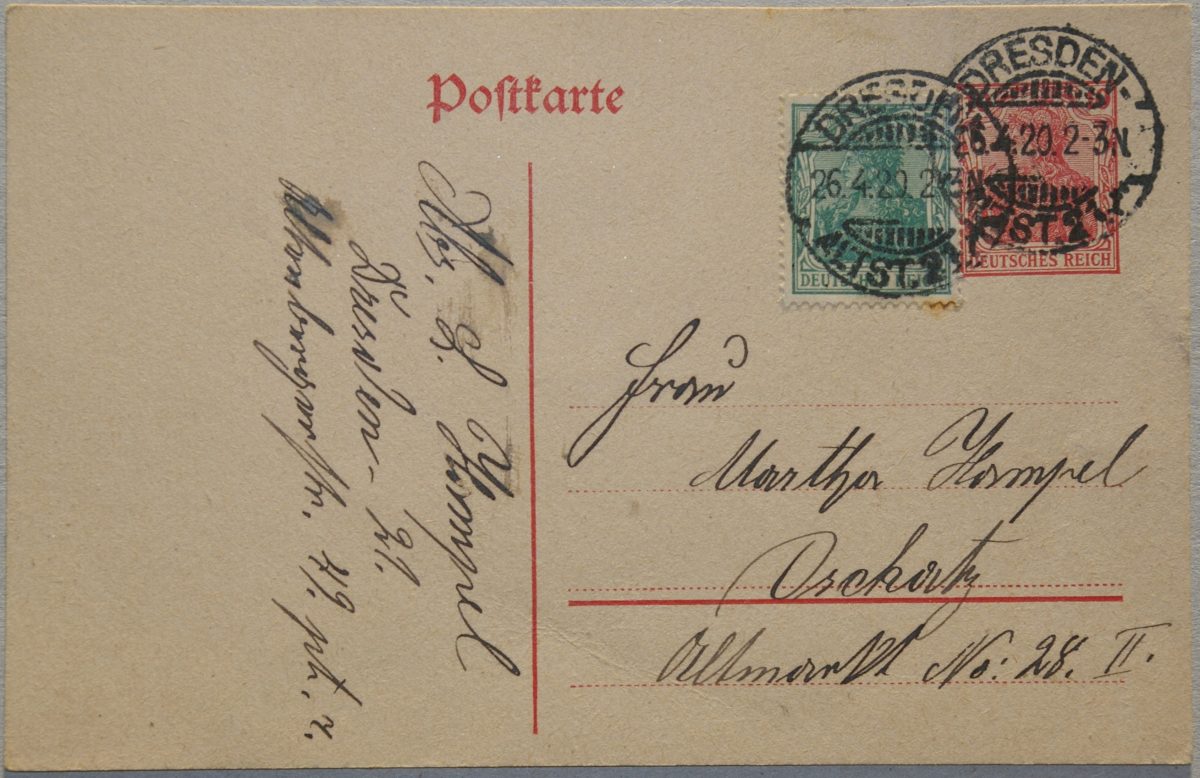 Postkarte
DRESDEN-
26.4.20. 2-3N
ALTST. 2
DEUTSCHES REICH
DRESDEN-
26.4.20. 2-3N
ALTST. 2
DEUTSCHES REICH
Frau
Martha Hempel
Oschatz
Altmarkt No: 28. II.
Abs. E. Hempel
Dresden - 21.
49. ptr. r.